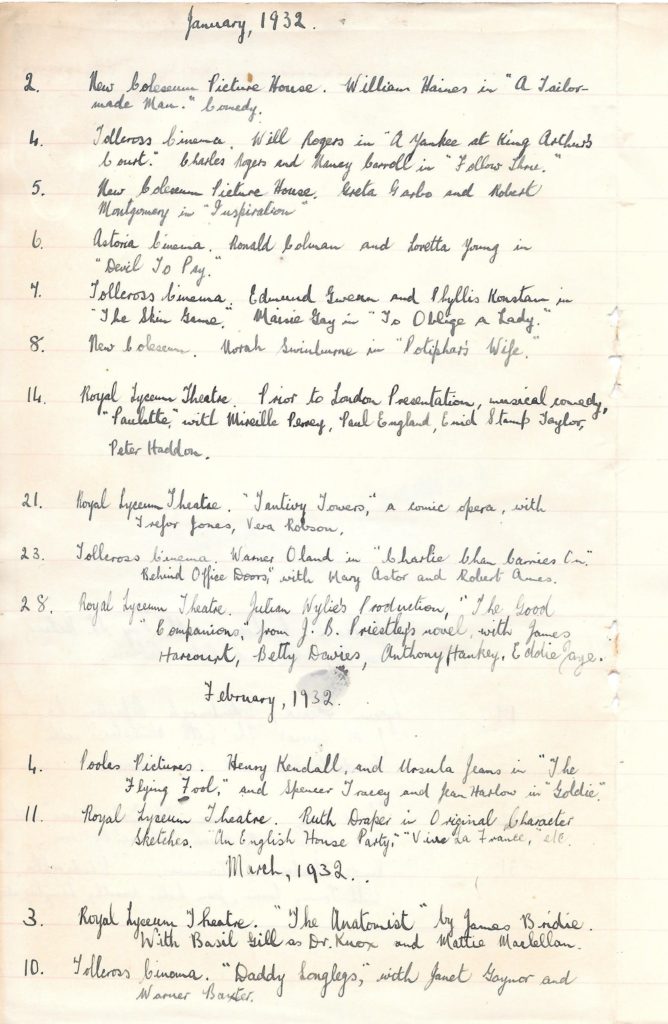 January, 1932.
2. New Coleseum Picture House. William Haines in "A Tailor-
made Man." Comedy.
4. Tollcross Cinema. Will Rogers in "A Yankee at King Arthur's
Court." Charles Rogers and Nancy Carroll in "Follow Thru."
5. New Coleseum Picture House. Greta Garbo and Robert
Montgomery in "Inspiration"
6. Astoria Cinema. Ronald Colman and Loretta Young in
"Devil To Pay."
7. Tollcross Cinema. Edmund Gwenn and Phyllis Konstam in
"The Skin Game." Maisie Gay in "To Oblige a Lady."
8. New Coleseum. Norah Swinburne in "Potiphar's Wife."
14. Royal Lyceum Theatre. Prior to London Presentation, musical comedy,
"Paulette," with Mireille Perrey, Paul England, Enid Stamp Taylor,
Peter Haddon.
21. Royal Lyceum Theatre. "Tantivy Towers," a comic opera, with
Trefor Jones, Vera Robson.
23. Tollcross Cinema. Warner Oland in "Charlie Chan Carries On".
Behind Office Doors," with Mary Astor and Robert Ames.
28. Royal Lyceum Theatre. Julian Wylie's Production, "The Good
Companions," from J. B. Priestley's novel, with James
Harcourt, Betty Davies, Anthony Hankey, Eddie Jaye.
February, 1932.
4. Pooles Pictures. Henry Kendall, and Ursula Jeans in "The
Flying Fool," and Spencer Tracey and Jean Harlow in "Goldie".
11. Royal Lyceum Theatre. Ruth Draper in Original Character
Sketches. "An English House Party," "Vive La France," etc.
March, 1932.
3. Royal Lyceum Theatre. "The Anatomist" by James Bridie.
With Basil Gill as Dr. Knox and Mattie Maclellan.
10. Tollcross Cinema. "Daddy Longlegs," with Janet Gaynor and
Warner Baxter.